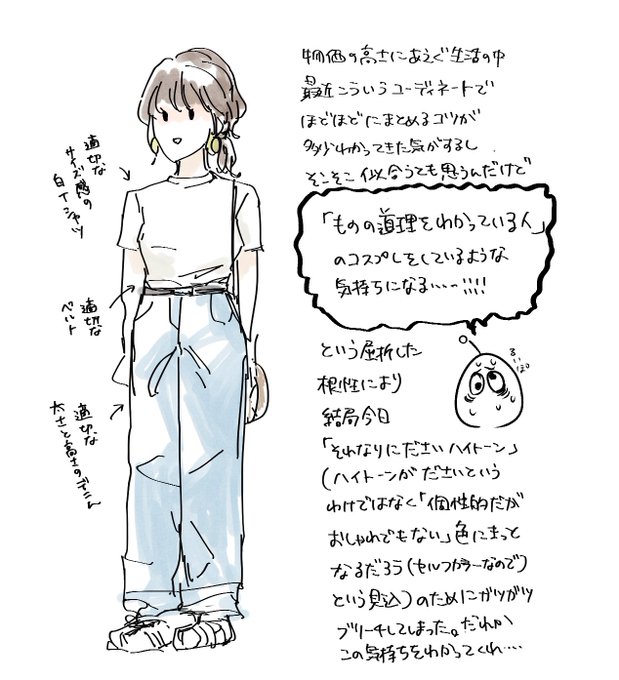 物価の高さにあえぐ生活の中
最近こういうコーディネートで
ほどほどにまとめるコツが
多少わかってきた気がするし
そこそこ似合うても思うんだけど
「ものの道理をわかっている人」
のコスプレをしているような
気持ちになる……!!!!
という屈折した
根性により
結局今日
「それなりにださいハイトーン」
(ハイトーンがださいという
わけではなく「個性的だが
おしゃれでもない」色にきっと
なるだろう(セルフカラーなので)
という見込)のためにガツガツ
ブリーチしてしまった。だれか
この気持ちをわかってくれ….
適切な
サイズ感の
白Tシャツ
適切な
ベルト
適切な
太さと高さのデニム
るいぱ